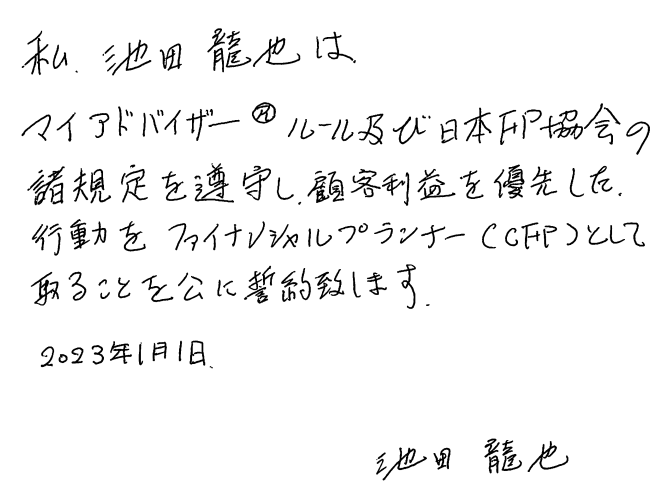 私、池田 龍也は、
マイアドバイザー®ルール及び日本FP協会の
諸規定を遵守し、顧客利益を優先した、
行動をファイナンシャルプランナー(CFP)として
取ることを公に誓約致します。
2023年1月1日、
池田 龍也